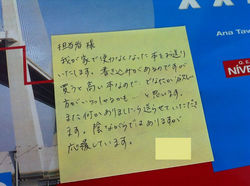 担当者 様
我が家で使わなくなった本をお送り
いたします。書き込みがあるのですが
買うと高い本なので、どなたか欲しい
方がいらっしゃるかも…と思います。
また何かありましたら送らせていただき
ます。陰ながらではありますが
応援しています。
Ana Tow
NIVE